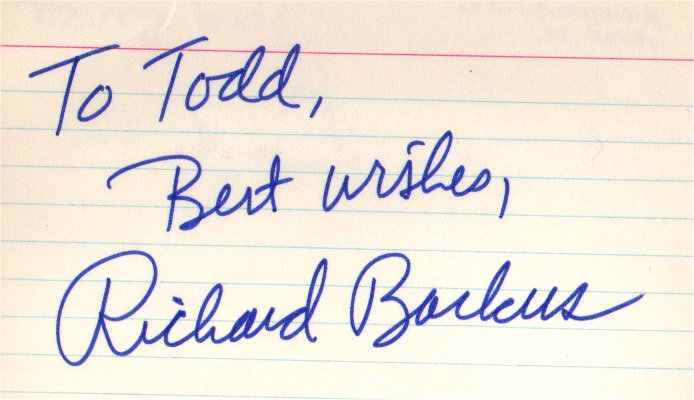 To Todd,
Best wishes,
Richard Backus